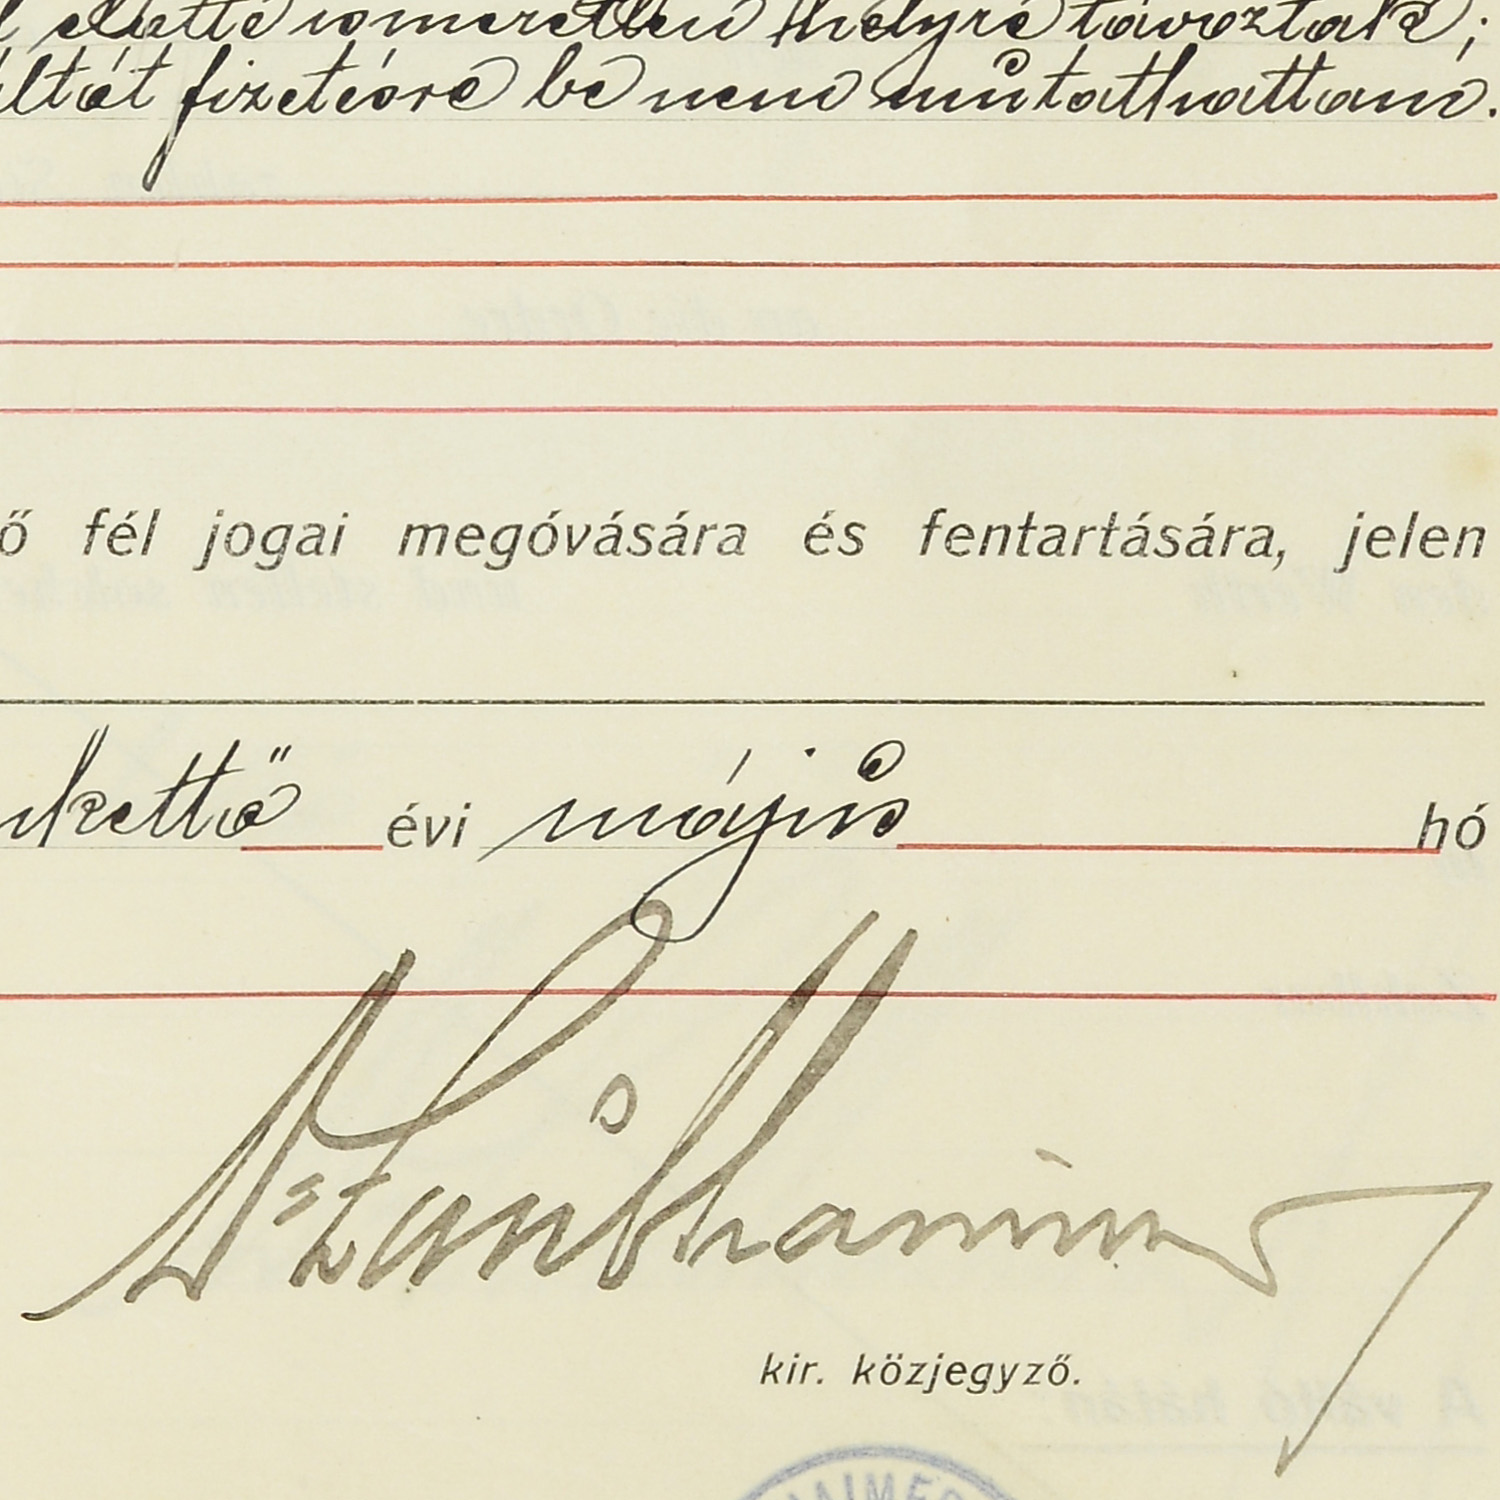 előtte ismeretlen helyre távoztak;
váltót fizetésre be nem mutathattam.
ő fél jogai megóvására és fentartására, jelen
nkettő évi május hó
kir. közjegyző.